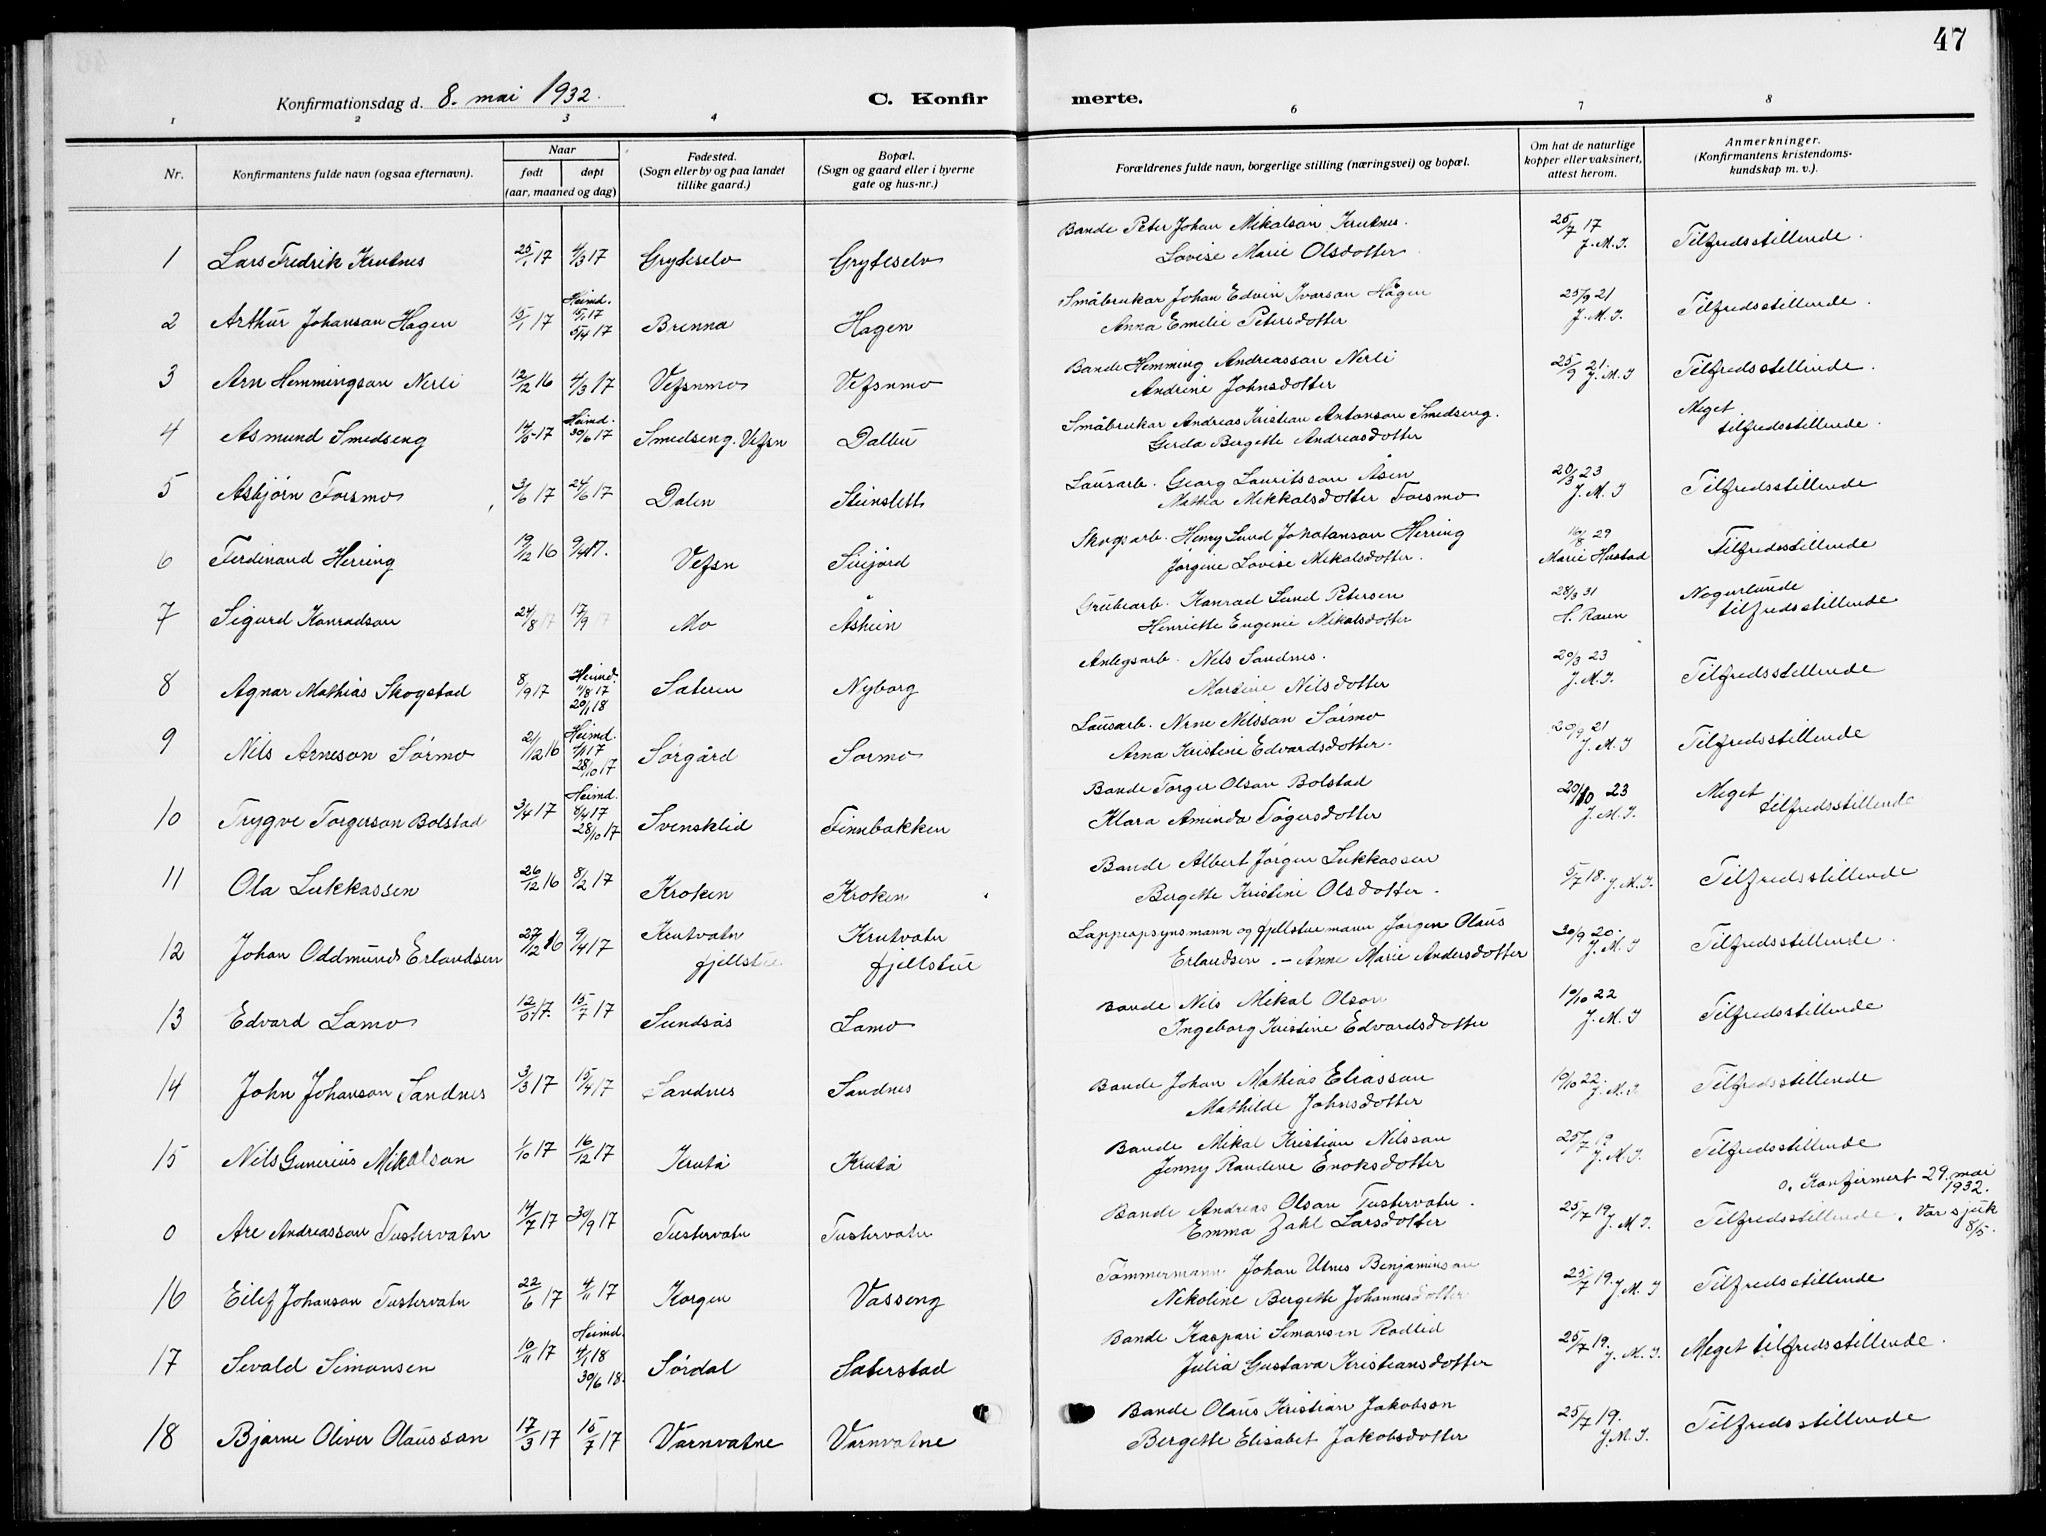 47
Konfirmationsdag d. 8. mai 1932. C. Konfirmerte.
1 2 3 4 6 7 8
Nr. Konfirmantens fulde navn (ogsaa efternavn). Naar født døpt (aar, maaned og dag) Fødested. (Sogn eller by og paa landet tillike gaard.) Bopæl. (Sogn og gaard eller i byerne gate og hus-nr.) Forældrenes fulde navn, borgerlige stilling (næringsvei) og bopæl. Om hat de naturlige kopper eller vaksinert, attest herom. Anmerkninger. (Konfirmantens kristendomskundskap m. v.).
1 Lars Fredrik Krutnes 25/1 17 4/3 17 Gryteselv Gryteselv Bonde Peter Johan Mikalson Krutnes. 25/7 17 Tilfredsstillende.
Lovise Marie Olsdotter J.M.I.
2 Arthur Johanson Hagen 15/1 17 Heimd. 15/1 17 5/4 17 Brenna Hagen Småbrukar Johan Edvin Ivarson Hagen 25/9 21 Tilfredsstillende.
Anna Emilie Petersdotter J.M.I.
3 Arn Hemmingson Nerli 12/12 16 4/3 17 Vefsnmo Vefsnmo Bonde Hemming Andreasson Nerli 25/9 21 J.M.I Tilfredsstillende.
Andrine Johnsdotter
4 Asmund Smedseng 14/5 17 Heimd. 30/6 17 Smedseng. Vefsn Dalbu Småbrukar Andreas Kristian Antonson Smedseng. Meget tilfredsstillende.
Gerda Bergette Andreasdotter
5 Asbjørn Forsmo 3/6 17 24/6 17 Dalen Steinslett Lausarb. Georg Lauritsson Åsen 20/3 23 Tilfredsstillende
Mathea Mikkalsdotter Forsmo J.M.I
6 Ferdinand Herring 19/12 16 9/4 17. Vefsn Sirijord Skogsarb. Henry Lund Johatanson Herring 16/8 29 Tilfredsstillende
Jørgine Lovise Mikalsdotter. Marie Hustad
7 Sigurd Konradson 24/8 17 17/9 17 Mo Åsheim Grubearb. Konrad Lund Petersen 28/3 31 Nogurlunde tilfredsstillende
Henriette Eugenie Mikalsdotter
8 Agnar Mathias Skogstad 8/9 17 Heimd. 11/8 17 20/1 18 Sæteren Nyborg Anlegsarb. Nils Sandnes. 20/3 23 Tilfredsstillende
Martine Nilsdotter J.M.I.
9 Nils Arneson Sørmo 21/12 16 Heimd. 1/1 17 28/10 17 Sørgård Sørmo Lausarb. Arne Nilsson Sørmo 20/9 21 Tilfredsstillende
Arna Kristine Edvardsdotter. J.M.I
10 Trygve Torgerson Bolstad 3/4 17 Heimd. 4/4 17 28/10 17 Svensklid Finnbakken Bonde Torger Olson Bolstad 20/10 23 Meget tilfredsstillende
Klara Aminda Tøgersdotter J.M.I.
11 Ola Lukkassen 26/12 16 8/2 17 Kroken Kroken Bonde Albert Jørgen Lukkassen 5/7 18. J.M.I. Tilfredsstillende
Bergette Kristine Olsdotter.
12 Johan Oddmund Erlandsen 27/12 16 9/4 17 Krutvatn fjellstue Krutvatn fjellstue Lappeopsynsmann og fjellstuemann Jørgen Olaus 30/9 20. Tilfredsstillende.
Erlandsen. - Anne Marie Andersdotter J.M.I
13 Edvard Lamo 12/5 17. 15/7 17 Sundsås Lamo Bonde Nils Mikal Olson 10/10 22 Tilfredsstillende
Ingeborg Kristine Edvardsdotter J.M.I
14 John Johanson Sandnes 3/3 17 15/4 17 Sandnes Sandnes Bonde Johan Mathias Eliasson 10/10 22. J.M.I Tilfredsstillende
Mathilde Johnsdotter
15 Nils Gunerius Mikalson 1/10 17 16/12 17 Krutå Krutå Bonde Mikal Kristian Nilsson 25/7 19 Tilfredsstillende
Jenny Randine Enoksdotter J.M.I.
0. Konfirmert 29. mai 1932.
0 Are Andreasson Tustervatn 14/7 17 30/9 17 Tustervatn Tustervatn Bonde Andreas Olson Tustervatn. 25/7 19 J.M.I. Tilfredsstillende. Var sjuk 8/5.
Emma Zahl Larsdotter
16 Eilif Johanson Tustervatn 22/6 17 4/11 17 Korgen Vasseng Tømmermann Johan Utnes Benjaminson 25/7 19. J.M.I Tilfredsstillende
Nikoline Bergette Johannesdotter
17 Sevald Simonsen 10/11 17 Heimd. 4/1 18 30/6 18. Sørdal Sæterstad Bonde Kaspari Simonsen Rødlid 25/7 19. J.M.I. Meget tilfredsstillende.
Julia Gustava Kristiansdotter
18 Bjarne Oliver Olausson 17/3 17 15/7 17 Varnvatne Varnvatne Bonde Olaus Kristian Jakobson 25/7 19. Tilfredsstillende
Bergette Elisabet Jakobsdotter J.M.I.